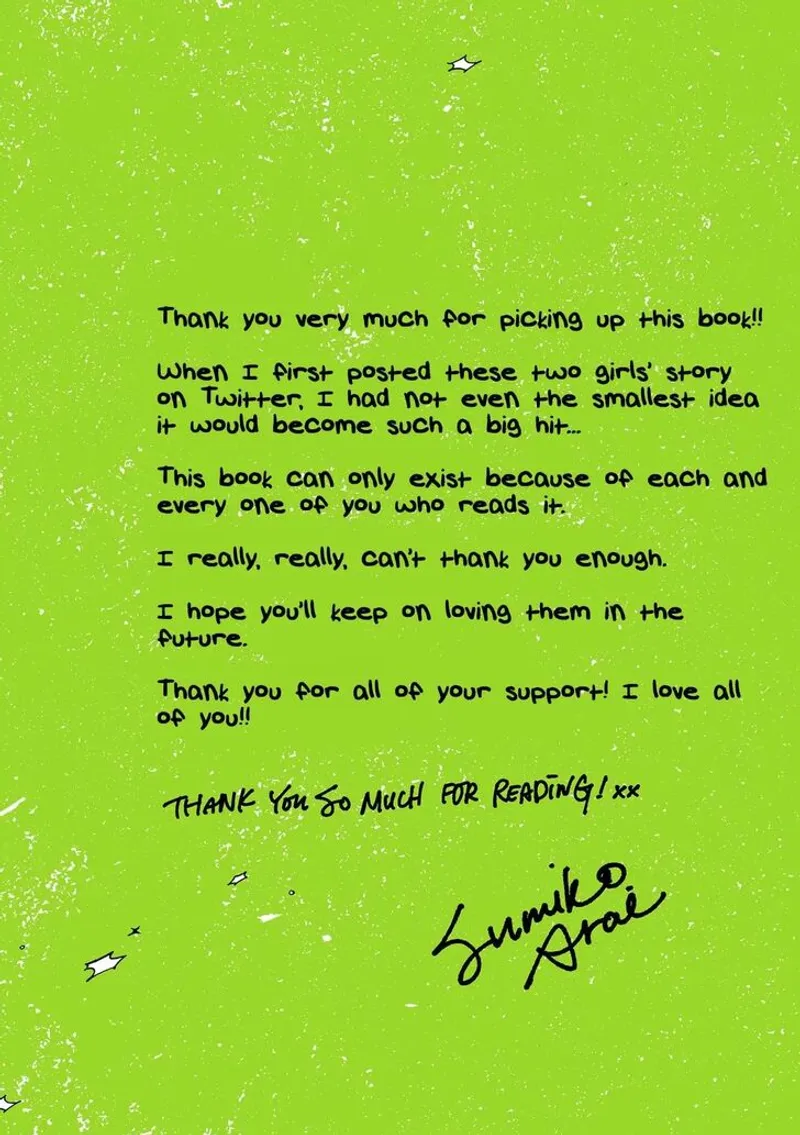 Thank you very much for picking up this book!!
When I first posted these two girls' story
on Twitter, I had not even the smallest idea
it would become such a big hit...
This book can only exist because of each and
every one of you who reads it.
I really, really, can't thank you enough.
I hope you'll keep on loving them in the
future.
Thank you for all of your support! I love all
of you!!
THANK YOU SO MUCH FOR READING! xx
Sumiko
Arai